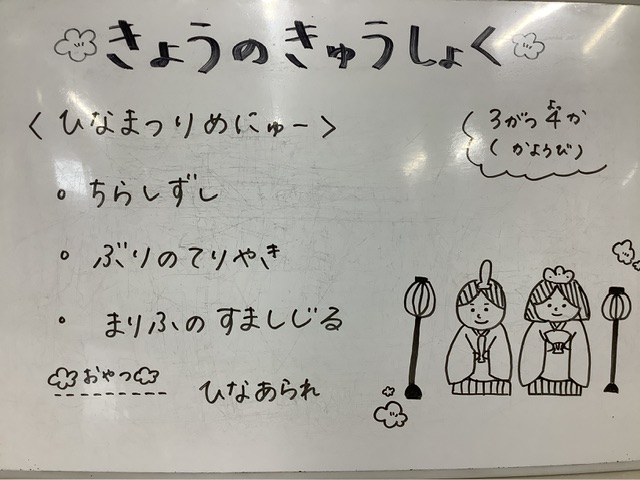 きょうのきゅうしょく
<ひなまつりめにゅー>
3がつ4か
よっ
(かようび)
・ちらしずし
・ぶりのてりやき
・まりふのすましじる
おやつ
ひなあられ